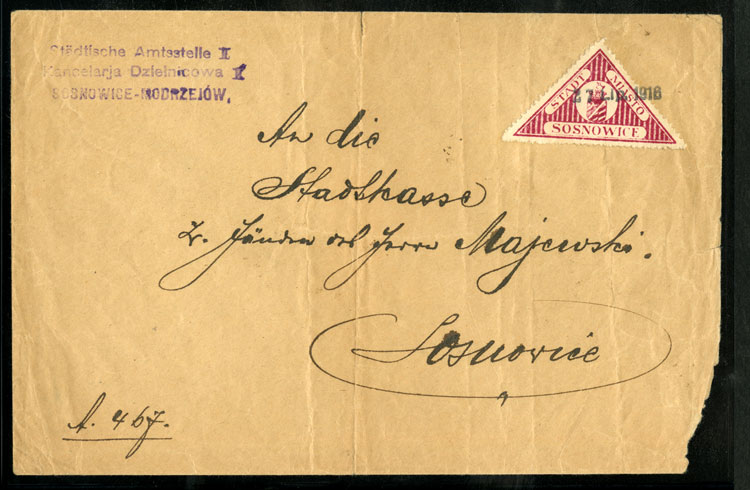 Städtische Amtsstelle II
Kancelarja Dzielnicowa II
SOSNOWICE-MODRZEJÓW.
STADT MIASTO
SOSNOWICE
27 Lip. 1916
An die
Stadtkasse
z. Händen des Herrn Majewski.
Sosnowice
A. 467.